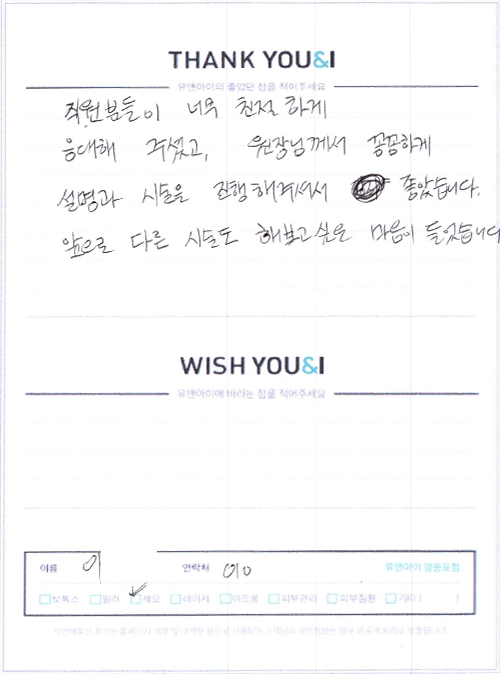 THANK YOU&I
유앤아이의 좋았던 점을 적어주세요
직원분들이 너무 친절하게
응대해 주셨고, 원장님께서 꼼꼼하게
설명과 시술을 진행해주셔서 좋았습니다.
앞으로 다른 시술도 해보고 싶은 마음이 들었습니다
WISH YOU&I
유앤아이에 바라는 점을 적어주세요
이름 이 연락처 010 유앤아이 영등포점
보톡스 필러 제모 레이저 여드름 피부관리 피부질환 기타 ( )